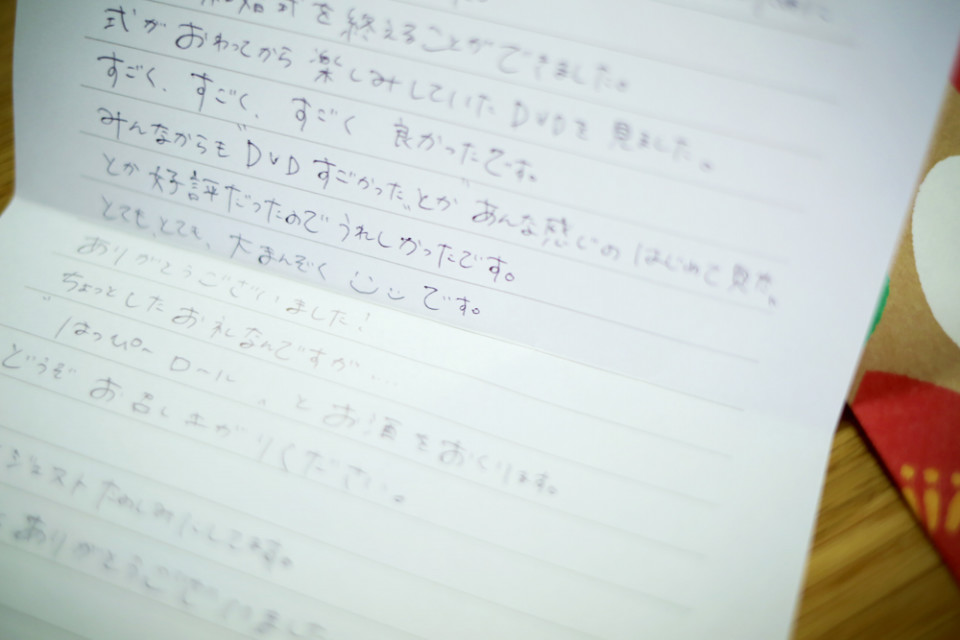 式を終えることができました。
式がおわってから楽しみしていたDVDを見ました。
すごく、すごく、すごく 良かったです。
みんなからも"DVDすごかった"とか"あんな感じのはじめて見た。
とか好評だったのでうれしかったです。
とても、とても、大まんぞく です。
ありがとうございました!
ちょっとしたお礼なんですが…
"はっぴーロール"とお酒をおくります。
どうぞお召し上がりください。
ジェストたのしみにしてます。
ありがとうございました